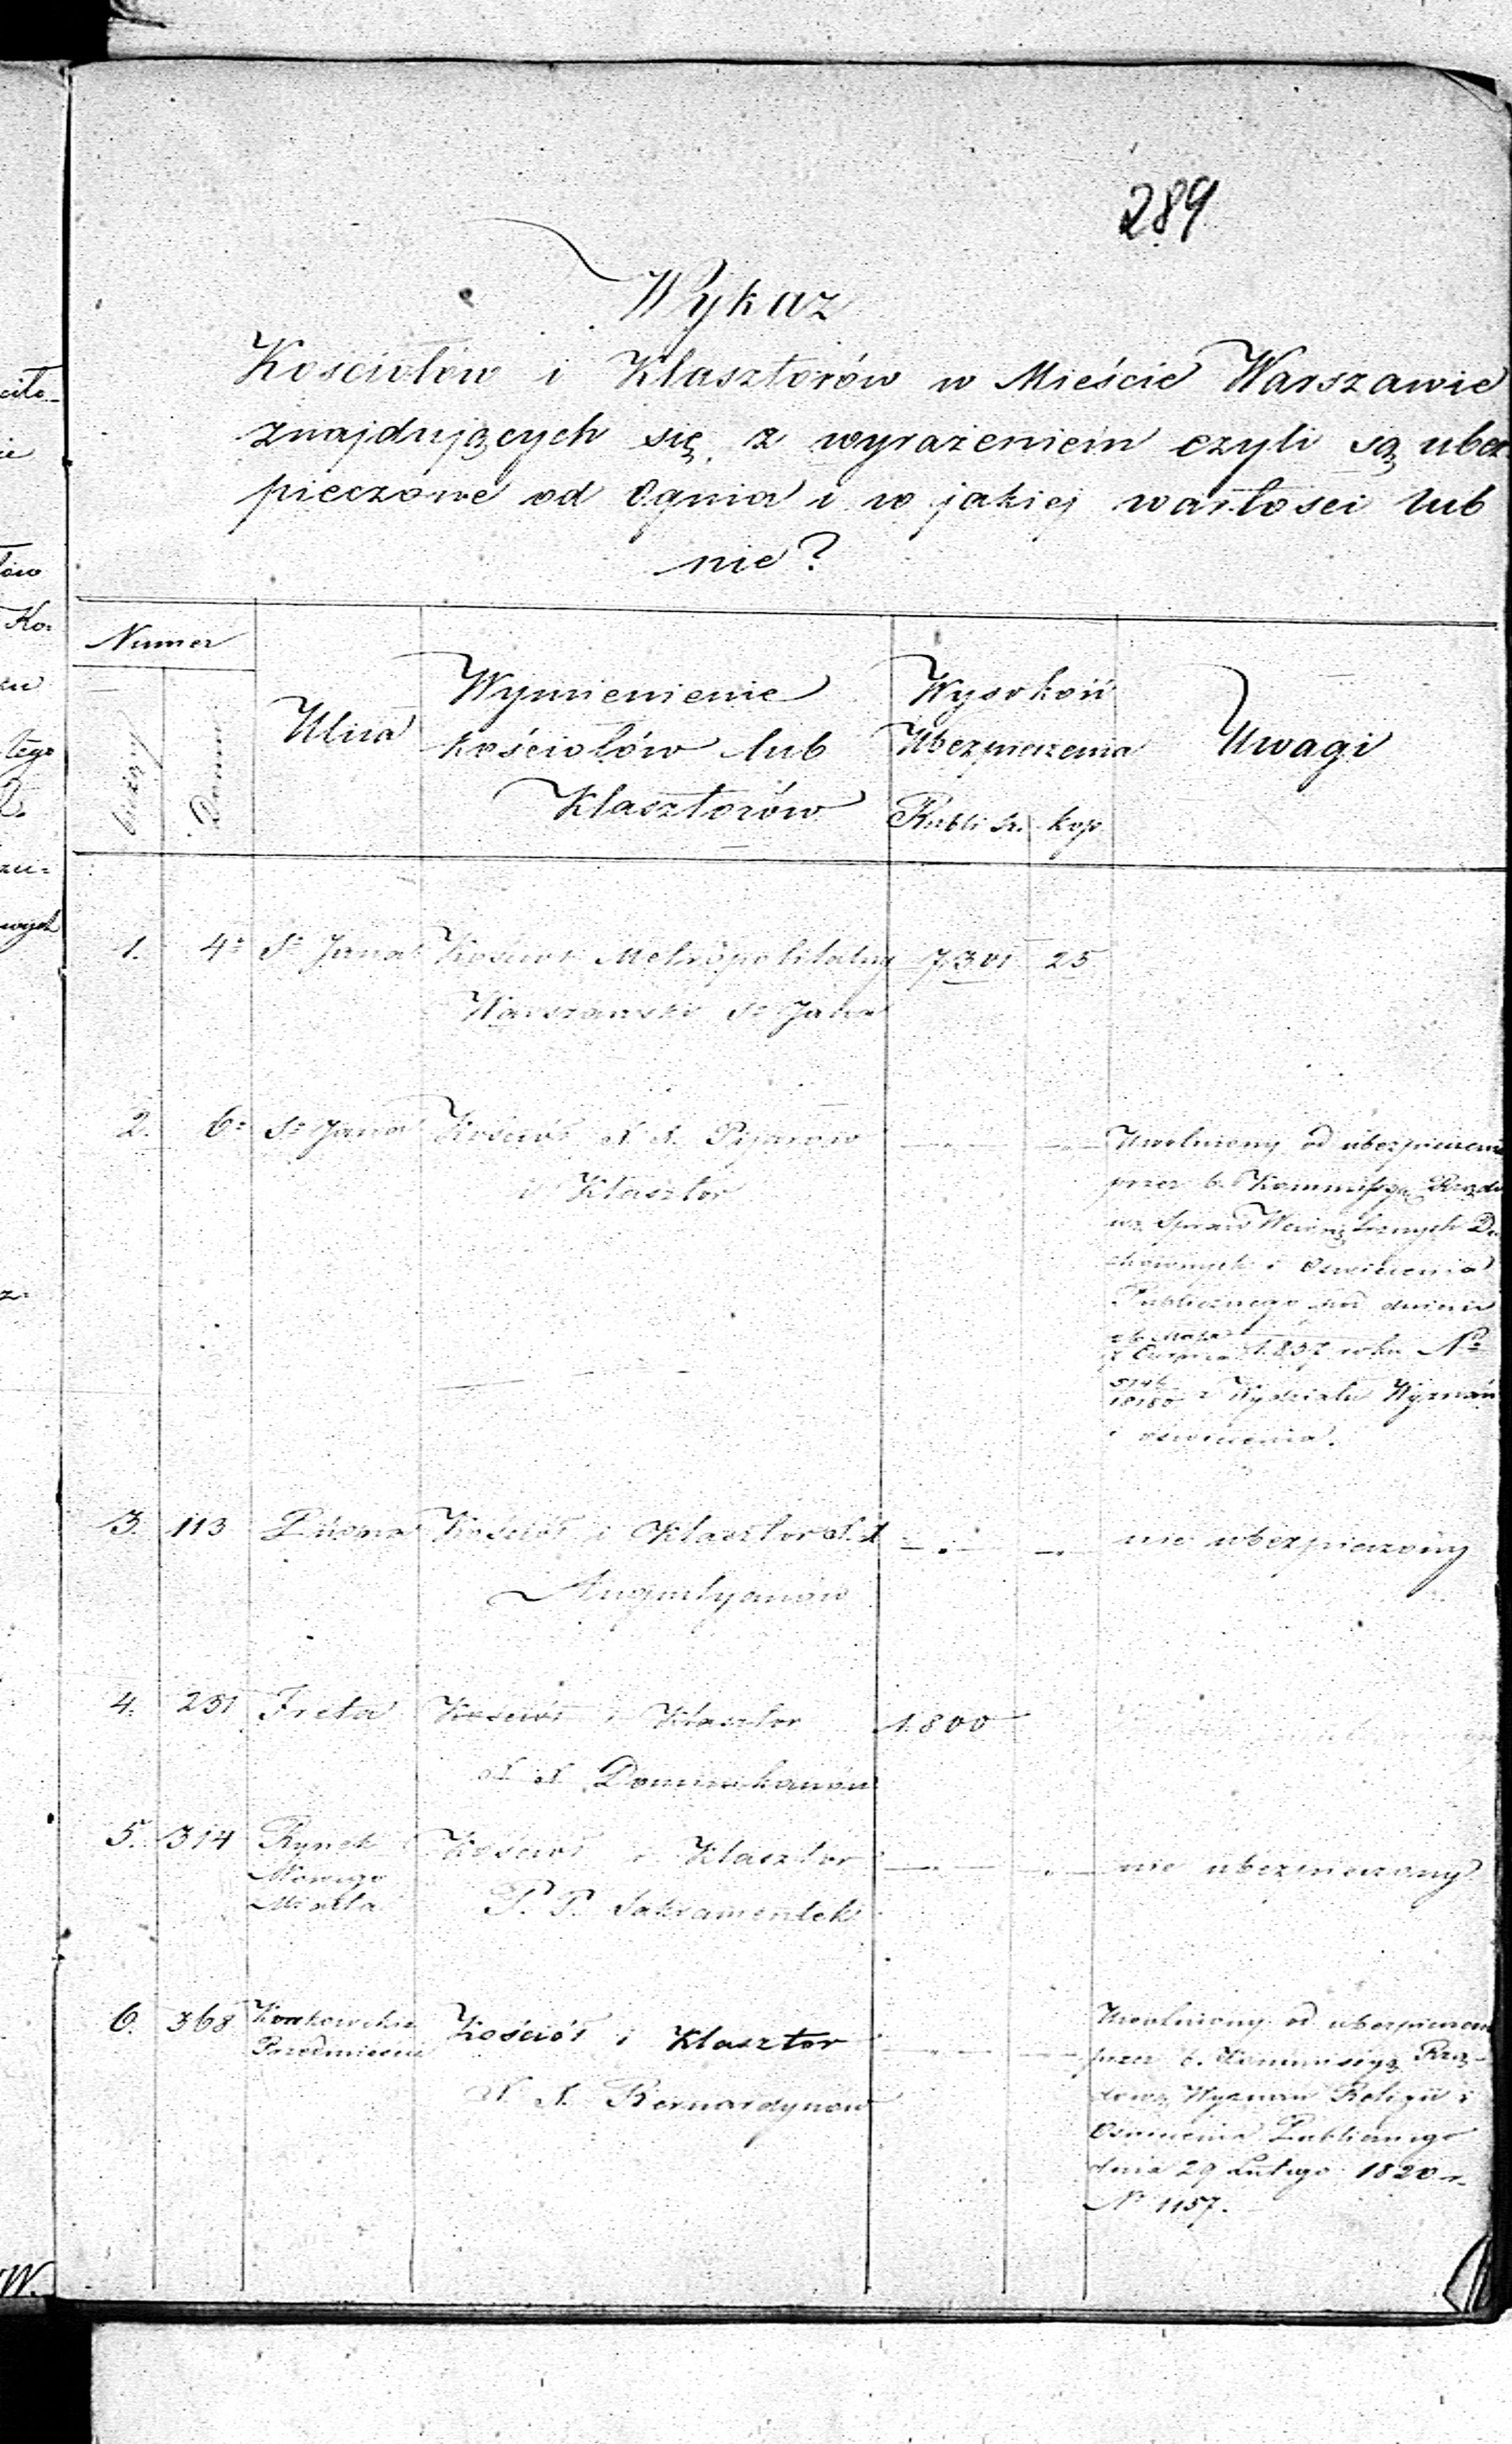 289
Wykaz
Kościołów i Klasztorów w Mieście Warszawie
znajdujących się, z wyrażeniem czyli są ubez
pieczone od Ognia i w jakiej wartości lub
nie?
Numer
bieżący
Domu
Ulica
Wymienienie
kościołów lub
Klasztorów
Wysokość
Ubezpieczenia
Rubli sr. kop
Uwagi
1. 4 Sº Jana Kościoł Metropolitalny 7,301 25
Warszawski Sº Jana
2. 6 Sº Jana Kościół X. X. Pijarów
i Klasztor
Uwolniony od ubezpieczenia
przez b. Kommissyą Rządo
wą Spraw Wewnętrznych Du
chownych i Oswiecenia
Publicznego pod dniem
26 Maja
7 Czerwca 1837 roku Nº
18180 z Wydziału Wyznań
i oswiecenia.
3. 113 Piwna Kościół i Klasztor X. X
Augustyanów
nie ubezpieczony
4. 251 Freta Kościół i Klasztor 1.800
X X Dominikanów
5. 314 Rynek
Nowego
Miasta
Kościół i Klasztor
P. P. Sakramentek
nie ubezpieczony
6. 368 Krakowskie
Przedmieście
Kościół i Klasztor
X X. Bernardynow
Uwolniony od ubezpieczen
przez b. Kommissyą Rzą-
dową Wyznań Religii i
Oswiecenia Publicznego
dnia 29 Lutego 1820 r.
Nº 1157.